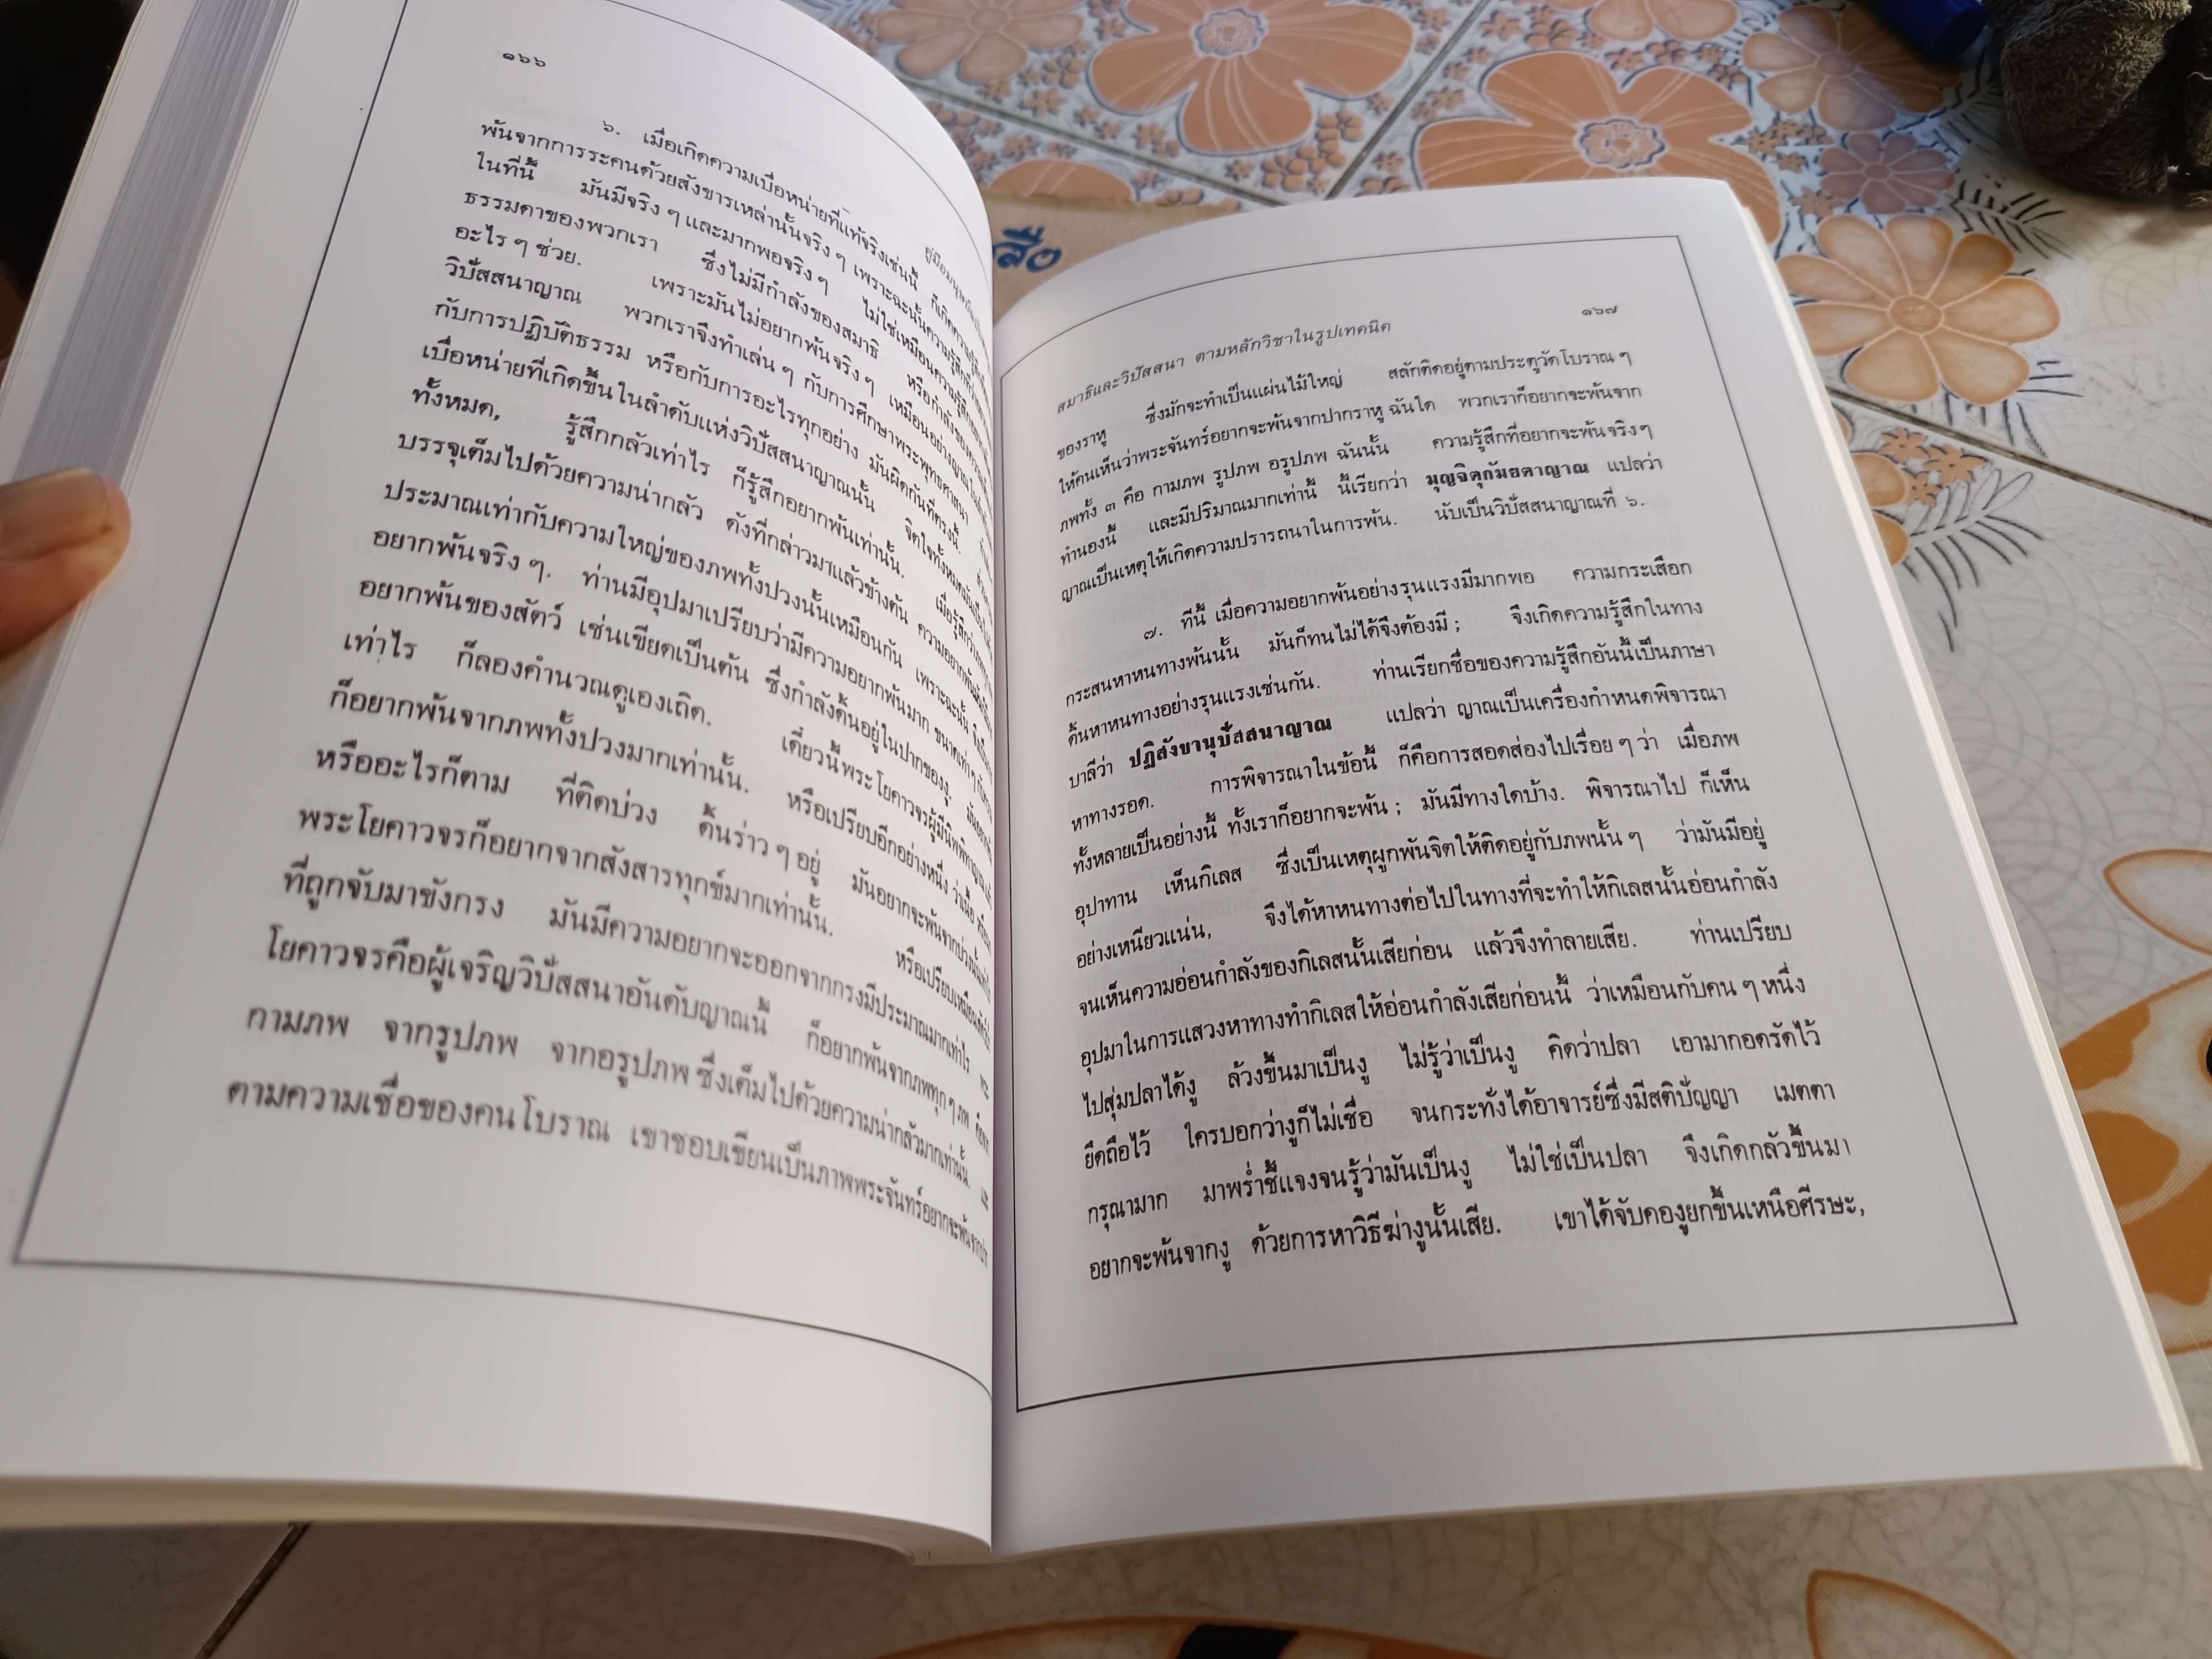 ๑๖๖
๖. เมื่อเกิดความเบื่อหน่ายที่แท้จริงเช่นนี้ ก็เกิดความรู้สึก
พ้นจากการระคนด้วยสังขารเหล่านั้นจริง ๆ เพราะฉะนั้นความรู้สึกที่
ในที่นี้ มันมีจริง ๆ และมากพอจริง ๆ ไม่ใช่เหมือนความรู้สึก
ธรรมดาของพวกเรา ซึ่งไม่มีกำลังของสมาธิ หรือกำลังของ
อะไร ๆ ช่วย. เพราะมันไม่อยากพ้นจริง ๆ เหมือนอย่างญาณ
วิปัสสนาญาณ พวกเราจึงทำเล่น ๆ กับการศึกษาพระพุทธศาสนา
กับการปฏิบัติธรรม หรือกับการอะไรทุกอย่าง มันผิดกันที่ตรงนี้.
เบื่อหน่ายที่เกิดขึ้นในลำดับแห่งวิปัสสนาญาณนั้น จิตใจทั้งหมดมัน
ทั้งหมด, รู้สึกกลัวเท่าไร ก็รู้สึกอยากพ้นเท่านั้น. เมื่อรู้สึกว่า
บรรจุเต็มไปด้วยความน่ากลัว ดังที่กล่าวมาแล้วข้างต้น ความอยากพ้น
ประมาณเท่ากับความใหญ่ของภพทั้งปวงนั้นเหมือนกัน เพราะฉะนั้น
อยากพ้นจริง ๆ. ท่านมีอุปมาเปรียบว่ามีความอยากพ้นมาก ขนาดเท่า ๆ กับ
อยากพ้นของสัตว์ เช่นเขียดเป็นต้น ซึ่งกำลังดิ้นอยู่ในปากของงู.
เท่าไร ก็ลองคำนวณดูเองเถิด. เดี๋ยวนี้พระโยคาวจรผู้มีนิพพิทาญาณ
ก็อยากพ้นจากภพทั้งปวงมากเท่านั้น. หรือเปรียบอีกอย่างหนึ่ง ว่าเนื้อ
หรืออะไรก็ตาม ที่ติดบ่วง ดิ้นร่าว ๆ อยู่ มันอยากจะพ้นจากบ่วงนั้น
พระโยคาวจรก็อยากจากสังสารทุกข์มากเท่านั้น. หรือเปรียบเหมือน
ที่ถูกจับมาขังกรง มันมีความอยากจะออกจากกรงมีประมาณมากเท่าไร
โยคาวจรคือผู้เจริญวิปัสสนาอันดับญาณนี้ ก็อยากพ้นจากภพทุก ๆ ภพ
กามภพ จากรูปภพ จากอรูปภพ ซึ่งเต็มไปด้วยความน่ากลัวมากเท่านั้น.
ตามความเชื่อของคนโบราณ เขาชอบเขียนเป็นภาพพระจันทร์อยากจะพ้นจาก
สมาธิและวิปัสสนา ตามหลักวิชาในรูปเทคนิค ๑๖๗
ของราหู ซึ่งมักจะทำเป็นแผ่นไม้ใหญ่ สลักติดอยู่ตามประตูวัดโบราณ ๆ
ให้คนเห็นว่าพระจันทร์อยากจะพ้นจากปากราหู ฉันใด พวกเราก็อยากจะพ้นจาก
ภพทั้ง ๓ คือ กามภพ รูปภพ อรูปภพ ฉันนั้น ความรู้สึกที่อยากจะพ้นจริงๆ
ทำนองนี้ และมีปริมาณมากเท่านี้ นี้เรียกว่า มุญจิตุกัมยตาญาณ แปลว่า
ญาณเป็นเหตุให้เกิดความปรารถนาในการพ้น. นับเป็นวิปัสสนาญาณที่ ๖.
๗. ทีนี้ เมื่อความอยากพ้นอย่างรุนแรงมีมากพอ ความกระเสือก
กระสนหาหนทางพ้นนั้น มันก็ทนไม่ได้จึงต้องมี ; จึงเกิดความรู้สึกในทาง
ดิ้นหาหนทางอย่างรุนแรงเช่นกัน. ท่านเรียกชื่อของความรู้สึกอันนี้เป็นภาษา
บาลีว่า ปฏิสังขานุปัสสนาญาณ แปลว่า ญาณเป็นเครื่องกำหนดพิจารณา
หาทางรอด. การพิจารณาในข้อนี้ ก็คือการสอดส่องไปเรื่อย ๆ ว่า เมื่อภพ
ทั้งหลายเป็นอย่างนี้ ทั้งเราก็อยากจะพ้น ; มันมีทางใดบ้าง. พิจารณาไป ก็เห็น
อุปาทาน เห็นกิเลส ซึ่งเป็นเหตุผูกพันจิตให้ติดอยู่กับภพนั้น ๆ ว่ามันมีอยู่
อย่างเหนียวแน่น, จึงได้หาหนทางต่อไปในทางที่จะทำให้กิเลสนั้นอ่อนกำลัง
จนเห็นความอ่อนกำลังของกิเลสนั้นเสียก่อน แล้วจึงทำลายเสีย. ท่านเปรียบ
อุปมาในการแสวงหาทางทำกิเลสให้อ่อนกำลังเสียก่อนนี้ ว่าเหมือนกับคน ๆ หนึ่ง
ไปสุ่มปลาได้งู ล้วงขึ้นมาเป็นงู ไม่รู้ว่าเป็นงู คิดว่าปลา เอามากอดรัดไว้
ยึดถือไว้ ใครบอกว่างูก็ไม่เชื่อ จนกระทั่งได้อาจารย์ซึ่งมีสติปัญญา เมตตา
กรุณามาก มาพร่ำชี้แจงจนรู้ว่ามันเป็นงู ไม่ใช่เป็นปลา จึงเกิดกลัวขึ้นมา
อยากจะพ้นจากงู ด้วยการหาวิธีฆ่างูนั้นเสีย. เขาได้จับคองูยกขึ้นเหนือศีรษะ,